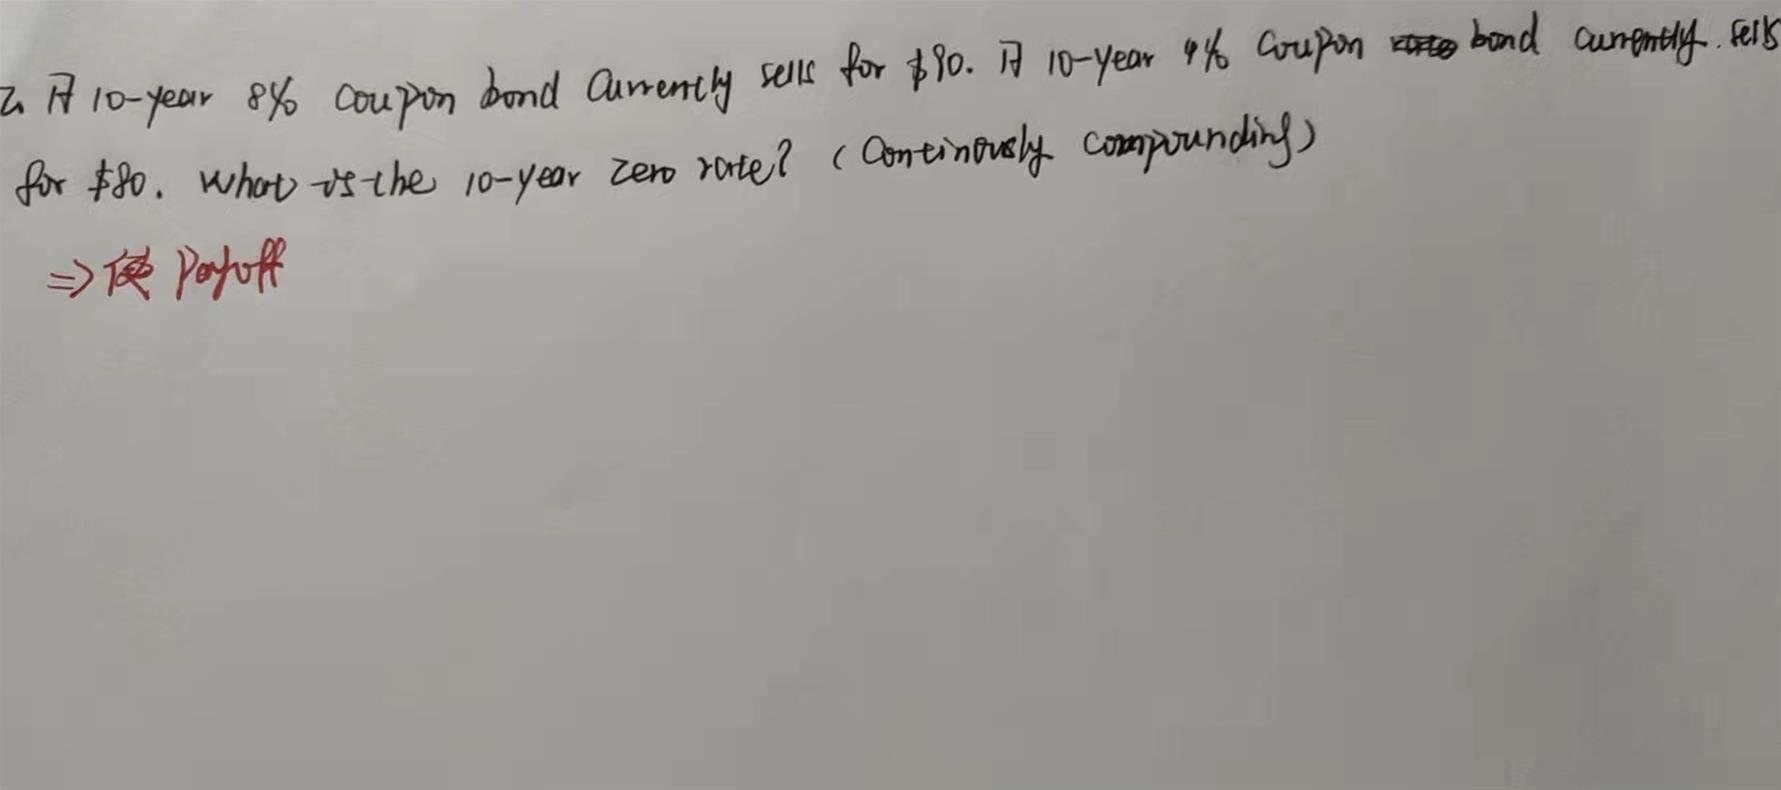 2. A 10-year 8% coupon bond currently sells for $90. A 10-year 4% coupon bond currently sells
for $80. What is the 10-year zero rate? (Continously compounding)
⇒ 使 Payoff